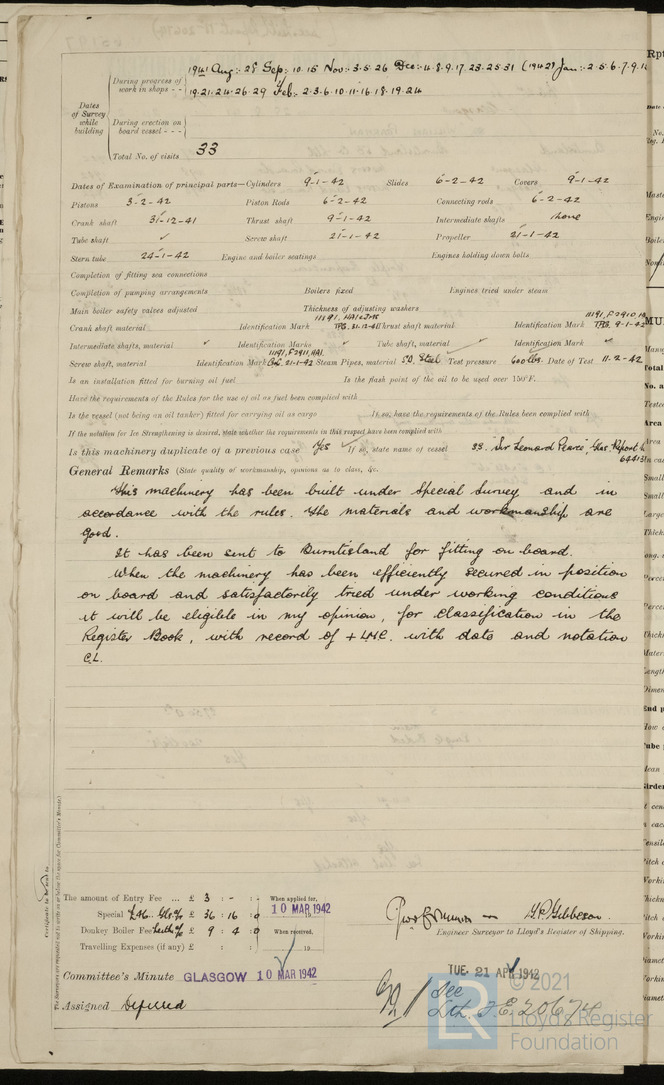 1941 Aug:- 28 Sep:- 10.15 Nov:- 3.5.26 Dec:- 4.8.9.17.23.25.31 (1942) Jan:- 2.5.6.7.9.
During progress of work in shops - -
19.21.24.26.29 Feb:- 2.3.6.10.11.16.18.19.24
Dates of Survey while building
During erection on board vessel - - -
Total No. of visits 33
Dates of Examination of principal parts—Cylinders 9-1-42 Slides 6-2-42 Covers 9-1-42
Pistons 3-2-42 Piston Rods 6-2-42 Connecting rods 6-2-42
Crank shaft 31-12-41 Thrust shaft 9-1-42 Intermediate shafts none
Tube shaft ✓ Screw shaft 21-1-42 Propeller 21-1-42
Stern tube 24-1-42 Engine and boiler seatings Engines holding down bolts
Completion of fitting sea connections
Completion of pumping arrangements Boilers fixed Engines tried under steam
Main boiler safety valves adjusted Thickness of adjusting washers
Crank shaft material Identification Mark Thrust shaft material Identification Mark
Intermediate shafts, material ✓ Identification Marks ✓ Tube shaft, material ✓ Identification Mark ✓
Screw shaft, material Identification Mark 21-1-42 Steam Pipes, material S.D. Steel Test pressure 600 lbs. Date of Test 11-2-42
Is an installation fitted for burning oil fuel Is the flash point of the oil to be used over 150°F.
Have the requirements of the Rules for the use of oil as fuel been complied with
Is the vessel (not being an oil tanker) fitted for carrying oil as cargo If so, have the requirements of the Rules been complied with
If the notation for Ice Strengthening is desired, state whether the requirements in this respect have been complied with
Is this machinery duplicate of a previous case Yes If so, state name of vessel SS. "Sir Leonard Pearce" Gls. Report No
64413
General Remarks (State quality of workmanship, opinions as to class, &c.
This machinery has been built under special survey and in
accordance with the rules. The materials and workmanship are
good.
It has been sent to Burntisland for fitting on board.
When the machinery has been efficiently secured in position
on board and satisfactorily tried under working conditions
it will be eligible in my opinion, for classification in the
Register Book, with record of + LMC. with date and notation
C.L.
The amount of Entry Fee .. £ 3 : - :
When applied for,
10 MAR 1942
Special £ 36 : 16 : 0
Donkey Boiler Fee £ 9 : 4 : 0
When received,
Travelling Expenses (if any) £ : :
19
Engineer Surveyor to Lloyd's Register of Shipping.
Committee's Minute GLASGOW 10 MAR 1942
TUE. 21 APR 1942
Assigned Deferred
See
Lth. F.E. 20674
© 2021
Lloyd's Register
Foundation